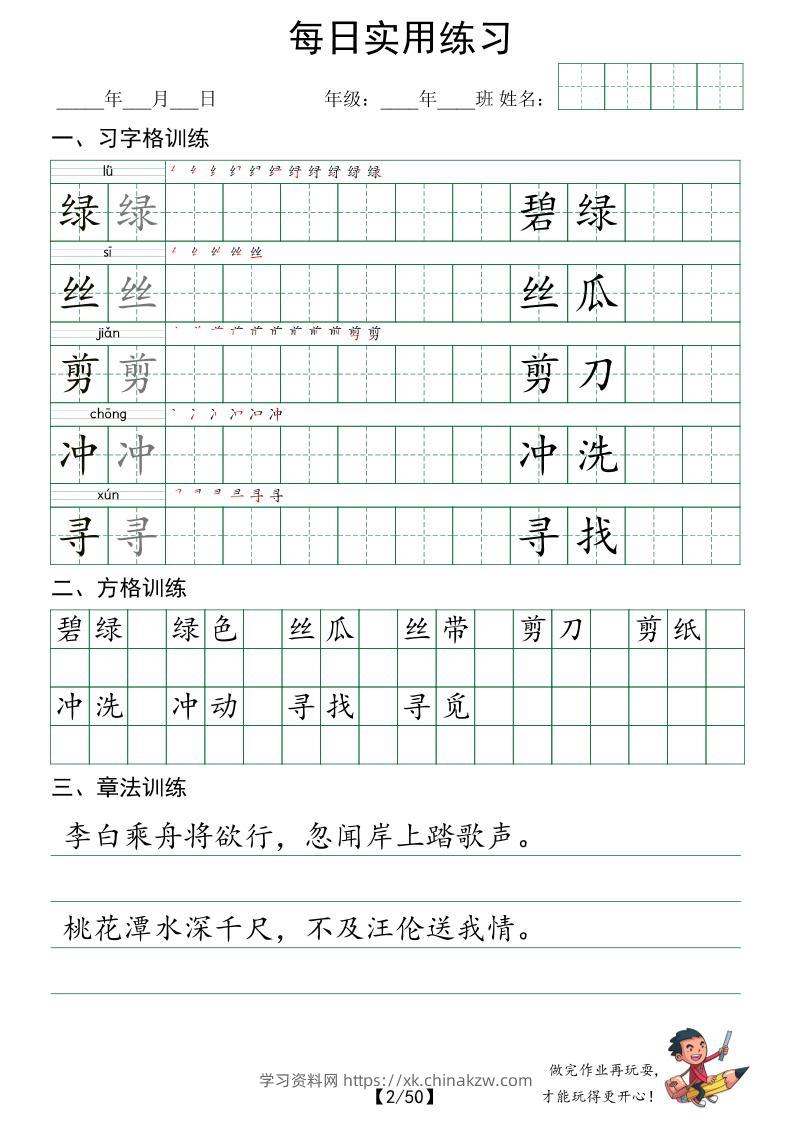 每日实用练习
_____年___月___日 年级：____年____班 姓名：
一、习字格训练
lǜ
绿 绿 碧 绿
sī
丝 丝 丝 瓜
jiǎn
剪 剪 剪 刀
chōng
冲 冲 冲 洗
xún
寻 寻 寻 找
二、方格训练
碧绿 绿色 丝瓜 丝带 剪刀 剪纸
冲洗 冲动 寻找 寻觅
三、章法训练
李白乘舟将欲行，忽闻岸上踏歌声。
桃花潭水深千尺，不及汪伦送我情。
做完作业再玩耍，
才能玩得更开心！
学习资料网 https://xk.chinakzw.com
【2/50】